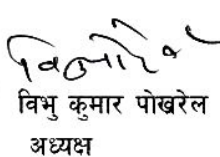 विभु कुमार पोखरेल
अध्यक्ष